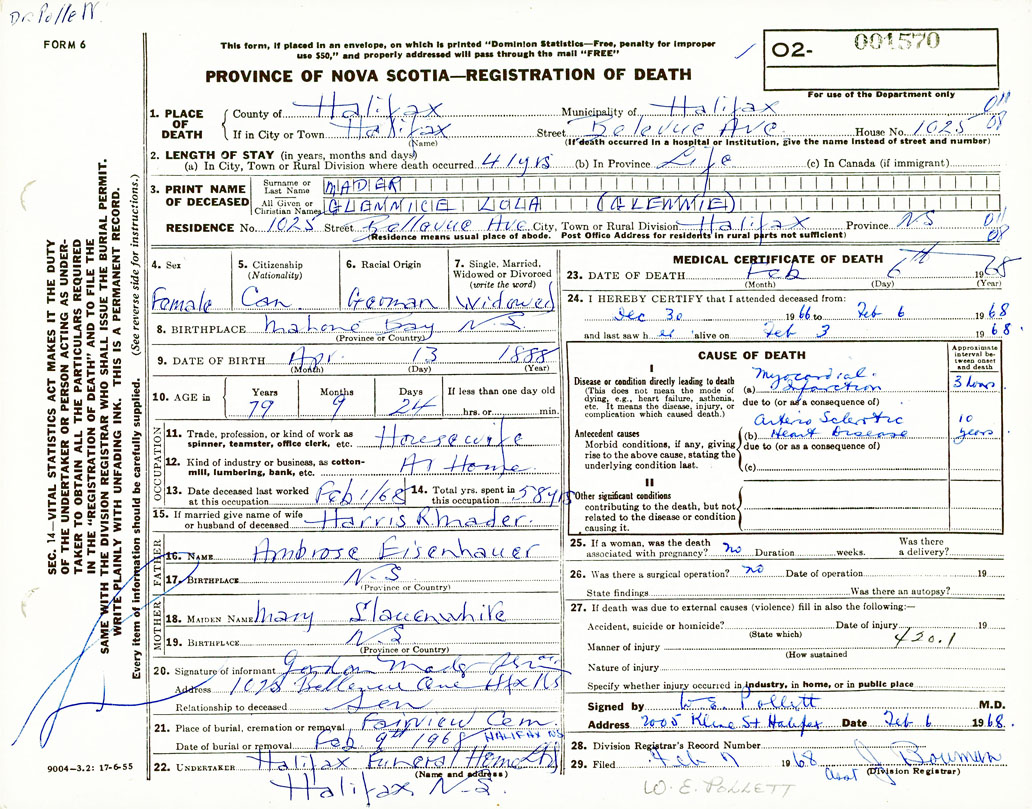 Dr. Pollett
FORM 6
This form, if placed in an envelope, on which is printed "Dominion Statistics—Free, penalty for improper
use $50," and properly addressed will pass through the mail "FREE"
PROVINCE OF NOVA SCOTIA—REGISTRATION OF DEATH
02- 001570
For use of the Department only
1. PLACE OF DEATH County of Halifax Municipality of Halifax 011
If in City or Town Halifax Street Bellevue Ave. House No. 1025 08
(Name) (If death occurred in a hospital or institution, give the name instead of street and number)
2. LENGTH OF STAY (in years, months and days)
(a) In City, Town or Rural Division where death occurred 41 yrs (b) In Province Life (c) In Canada (if immigrant)
3. PRINT NAME OF DECEASED Surname or Last Name MADER
All Given or Christian Names GLEMMICE LOLA (GLEMMIE)
RESIDENCE No. 1025 Street Bellevue Ave City, Town or Rural Division Halifax Province NS 011
(Residence means usual place of abode. Post Office Address for residents in rural parts not sufficient) 08
4. Sex Female
5. Citizenship (Nationality) Can
6. Racial Origin German
7. Single, Married, Widowed or Divorced (write the word) Widowed
8. BIRTHPLACE Mahone Bay N.S.
(Province or Country)
9. DATE OF BIRTH Apr. 13 1888
(Month) (Day) (Year)
10. AGE in Years 79 Months 9 Days 24 If less than one day old hrs. or min.
OCCUPATION
11. Trade, profession, or kind of work as spinner, teamster, office clerk, etc. Housewife
12. Kind of industry or business, as cotton-mill, lumbering, bank, etc. At Home
13. Date deceased last worked at this occupation Feb 1/68
14. Total yrs. spent in this occupation 58 yrs
15. If married give name of wife or husband of deceased Harris R. Mader.
FATHER
16. NAME Ambrose Eisenhauer
17. BIRTHPLACE N.S
(Province or Country)
MOTHER
18. MAIDEN NAME Mary Slauenwhite
19. BIRTHPLACE N S
(Province or Country)
20. Signature of informant Gordon Mader
Address 1025 Bellevue Ave Hfx NS
Relationship to deceased Son
21. Place of burial, cremation or removal Fairview Cem.
Date of burial or removal Feb 9th 1968 HALIFAX NS
22. UNDERTAKER Halifax Funeral Home Ltd
(Name and address)
Halifax N.S.
MEDICAL CERTIFICATE OF DEATH
23. DATE OF DEATH Feb 6th 1968
(Month) (Day) (Year)
24. I HEREBY CERTIFY that I attended deceased from:
Dec 30 1966 to Feb 6 1968
and last saw h er alive on Feb 3 1968.
CAUSE OF DEATH
Approximate interval between onset and death
I
Disease or condition directly leading to death
(This does not mean the mode of dying, e.g., heart failure, asthenia, etc. It means the disease, injury, or complication which caused death.)
(a) Myocardial Infarction 3 hours
due to (or as a consequence of)
Antecedent causes
Morbid conditions, if any, giving rise to the above cause, stating the underlying condition last.
(b) Arterio Sclerotic Heart Disease 10 years
due to (or as a consequence of)
(c)
II
Other significant conditions
contributing to the death, but not related to the disease or condition causing it.
25. If a woman, was the death associated with pregnancy? no Duration weeks. Was there a delivery?
26. Was there a surgical operation? no Date of operation 19
State findings Was there an autopsy?
27. If death was due to external causes (violence) fill in also the following:—
Accident, suicide or homicide? Date of injury 19
(State which)
Manner of injury 420.1
(How sustained)
Nature of injury
Specify whether injury occurred in industry, in home, or in public place
Signed by W.E. Pollett M.D.
Address 2005 Kline St Halifax Date Feb 6 1968.
28. Division Registrar's Record Number
29. Filed Feb 7 1968 J. Bowman
Asst (Division Registrar)
W. E. POLLETT
SEC. 14—VITAL STATISTICS ACT MAKES IT THE DUTY
OF THE UNDERTAKER OR PERSON ACTING AS UNDER-
TAKER TO OBTAIN ALL THE PARTICULARS REQUIRED
IN THE "REGISTRATION OF DEATH" AND TO FILE THE
SAME WITH THE DIVISION REGISTRAR WHO SHALL ISSUE THE BURIAL PERMIT.
WRITE PLAINLY WITH UNFADING INK. THIS IS A PERMANENT RECORD.
Every item of information should be carefully supplied. (See reverse side for instructions.)
9004-3.2: 17-6-55